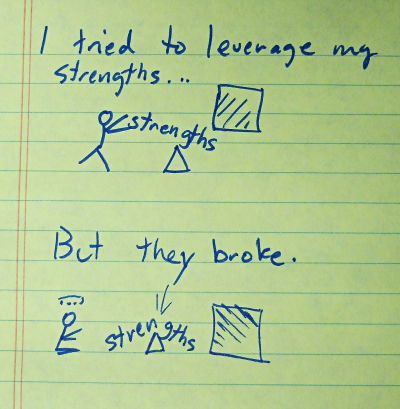 I tried to leverage my
strengths...
strengths
But they broke.
strengths